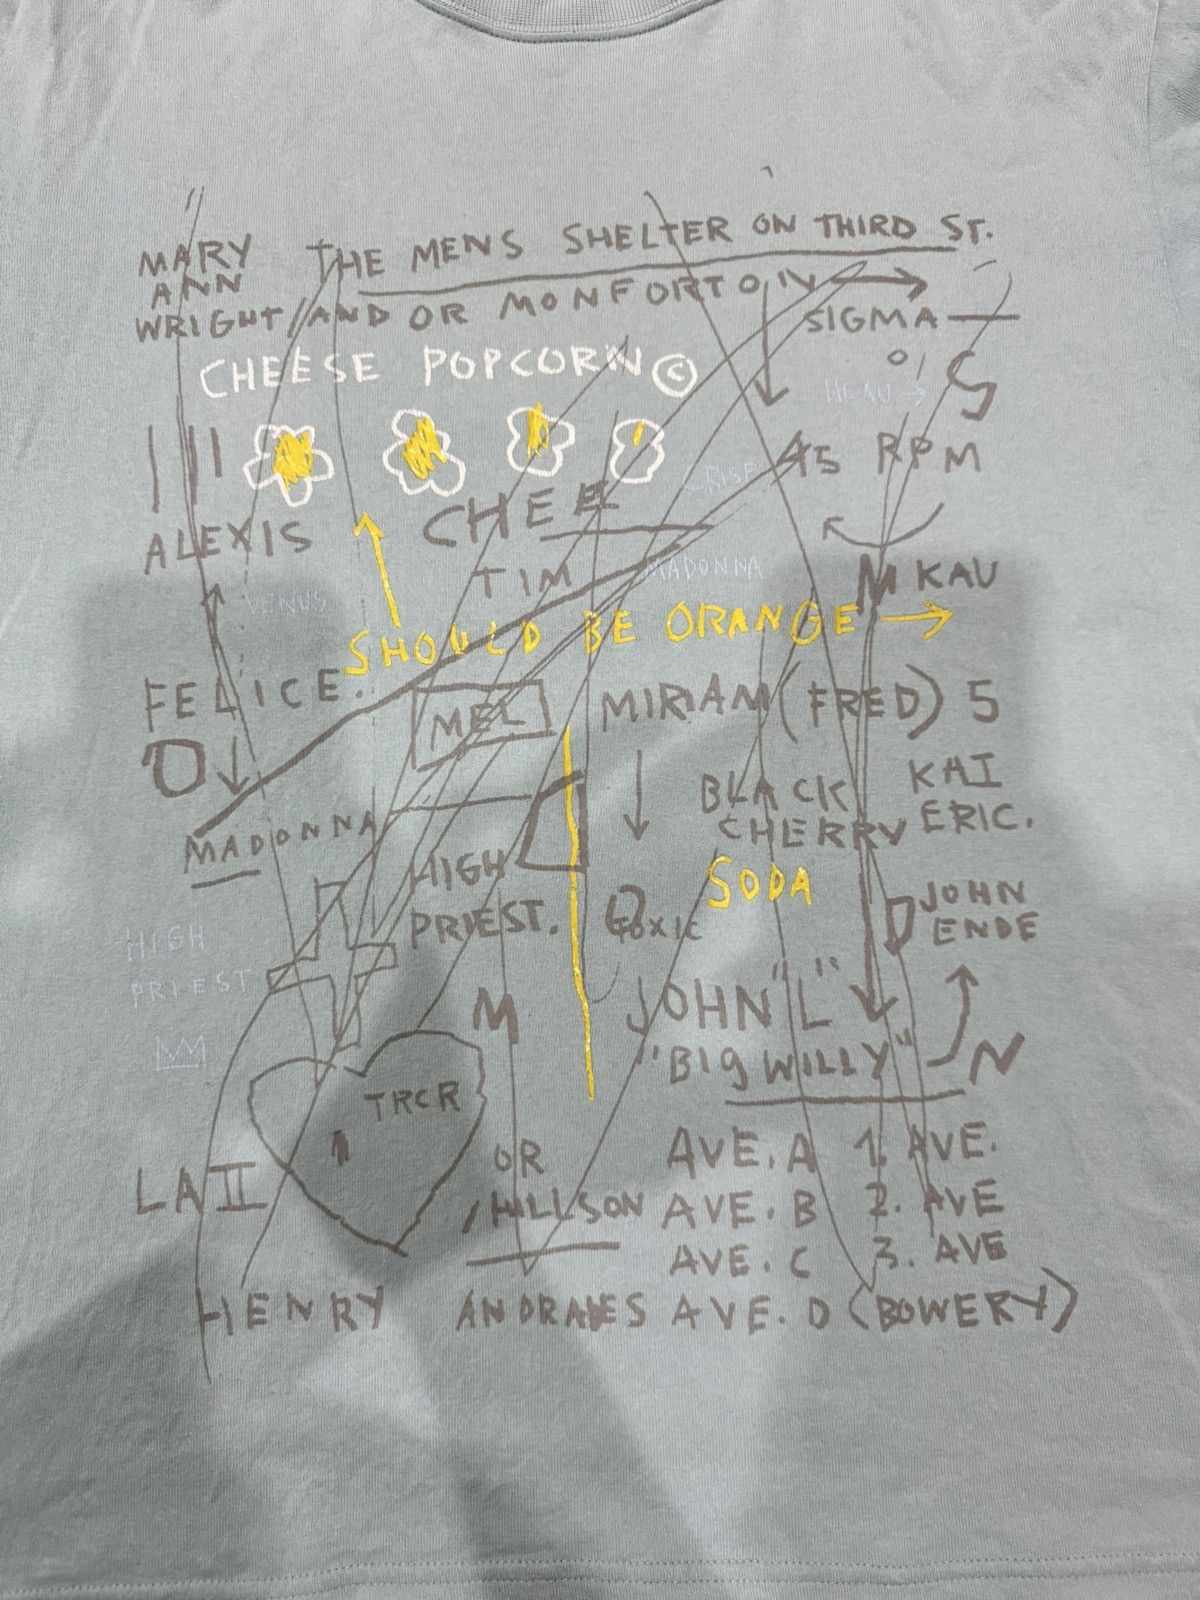 MARY THE MENS SHELTER ON THIRD ST.
ANN
WRIGHT/AND OR MONFORTON
SIGMA
CHEESE POPCORN © S
45 RPM
CRISP
CHEE
ALEXIS
TIM MADONNA MKAU
VENUS
SHOULD BE ORANGE
FELICE. MEL MIRIAM (FRED) 5
O
BLACK KAI
CHERRY ERIC.
MADONNA
HIGH SODA JOHN
PRIEST. TOXIC ENDE
HIGH
PRIEST
M JOHN "L"
"BIG WILLY" N
TRCR
OR AVE. A 1. AVE.
LA II HILLSON AVE. B 2. AVE
AVE. C 3. AVE
HENRY AVE. D (BOWERY)